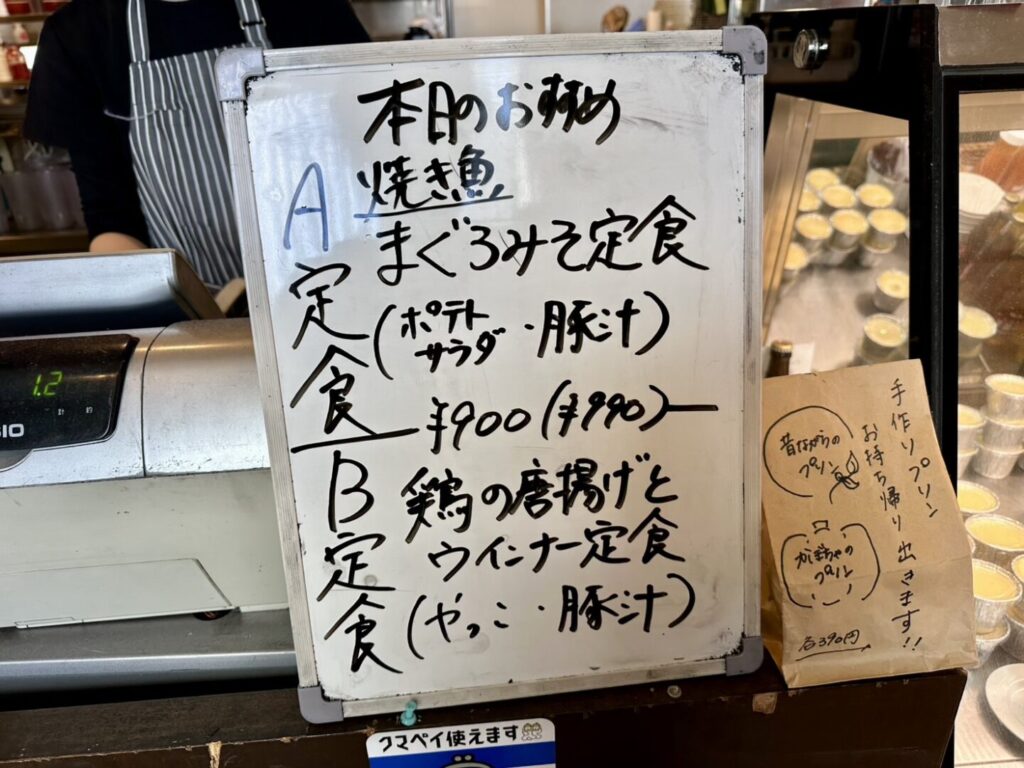 本日のおすすめ
A定食
焼き魚
まぐろみそ定食
(ポテトサラダ・豚汁)
¥900(¥990)
B定食
鶏の唐揚げと
ウインナー定食
(やっこ・豚汁)
手作りプリン
お持ち帰り出来ます!!
昔ながらの
プリン
かぼちゃの
プリン
各390円
クマペイ使えます
1.2